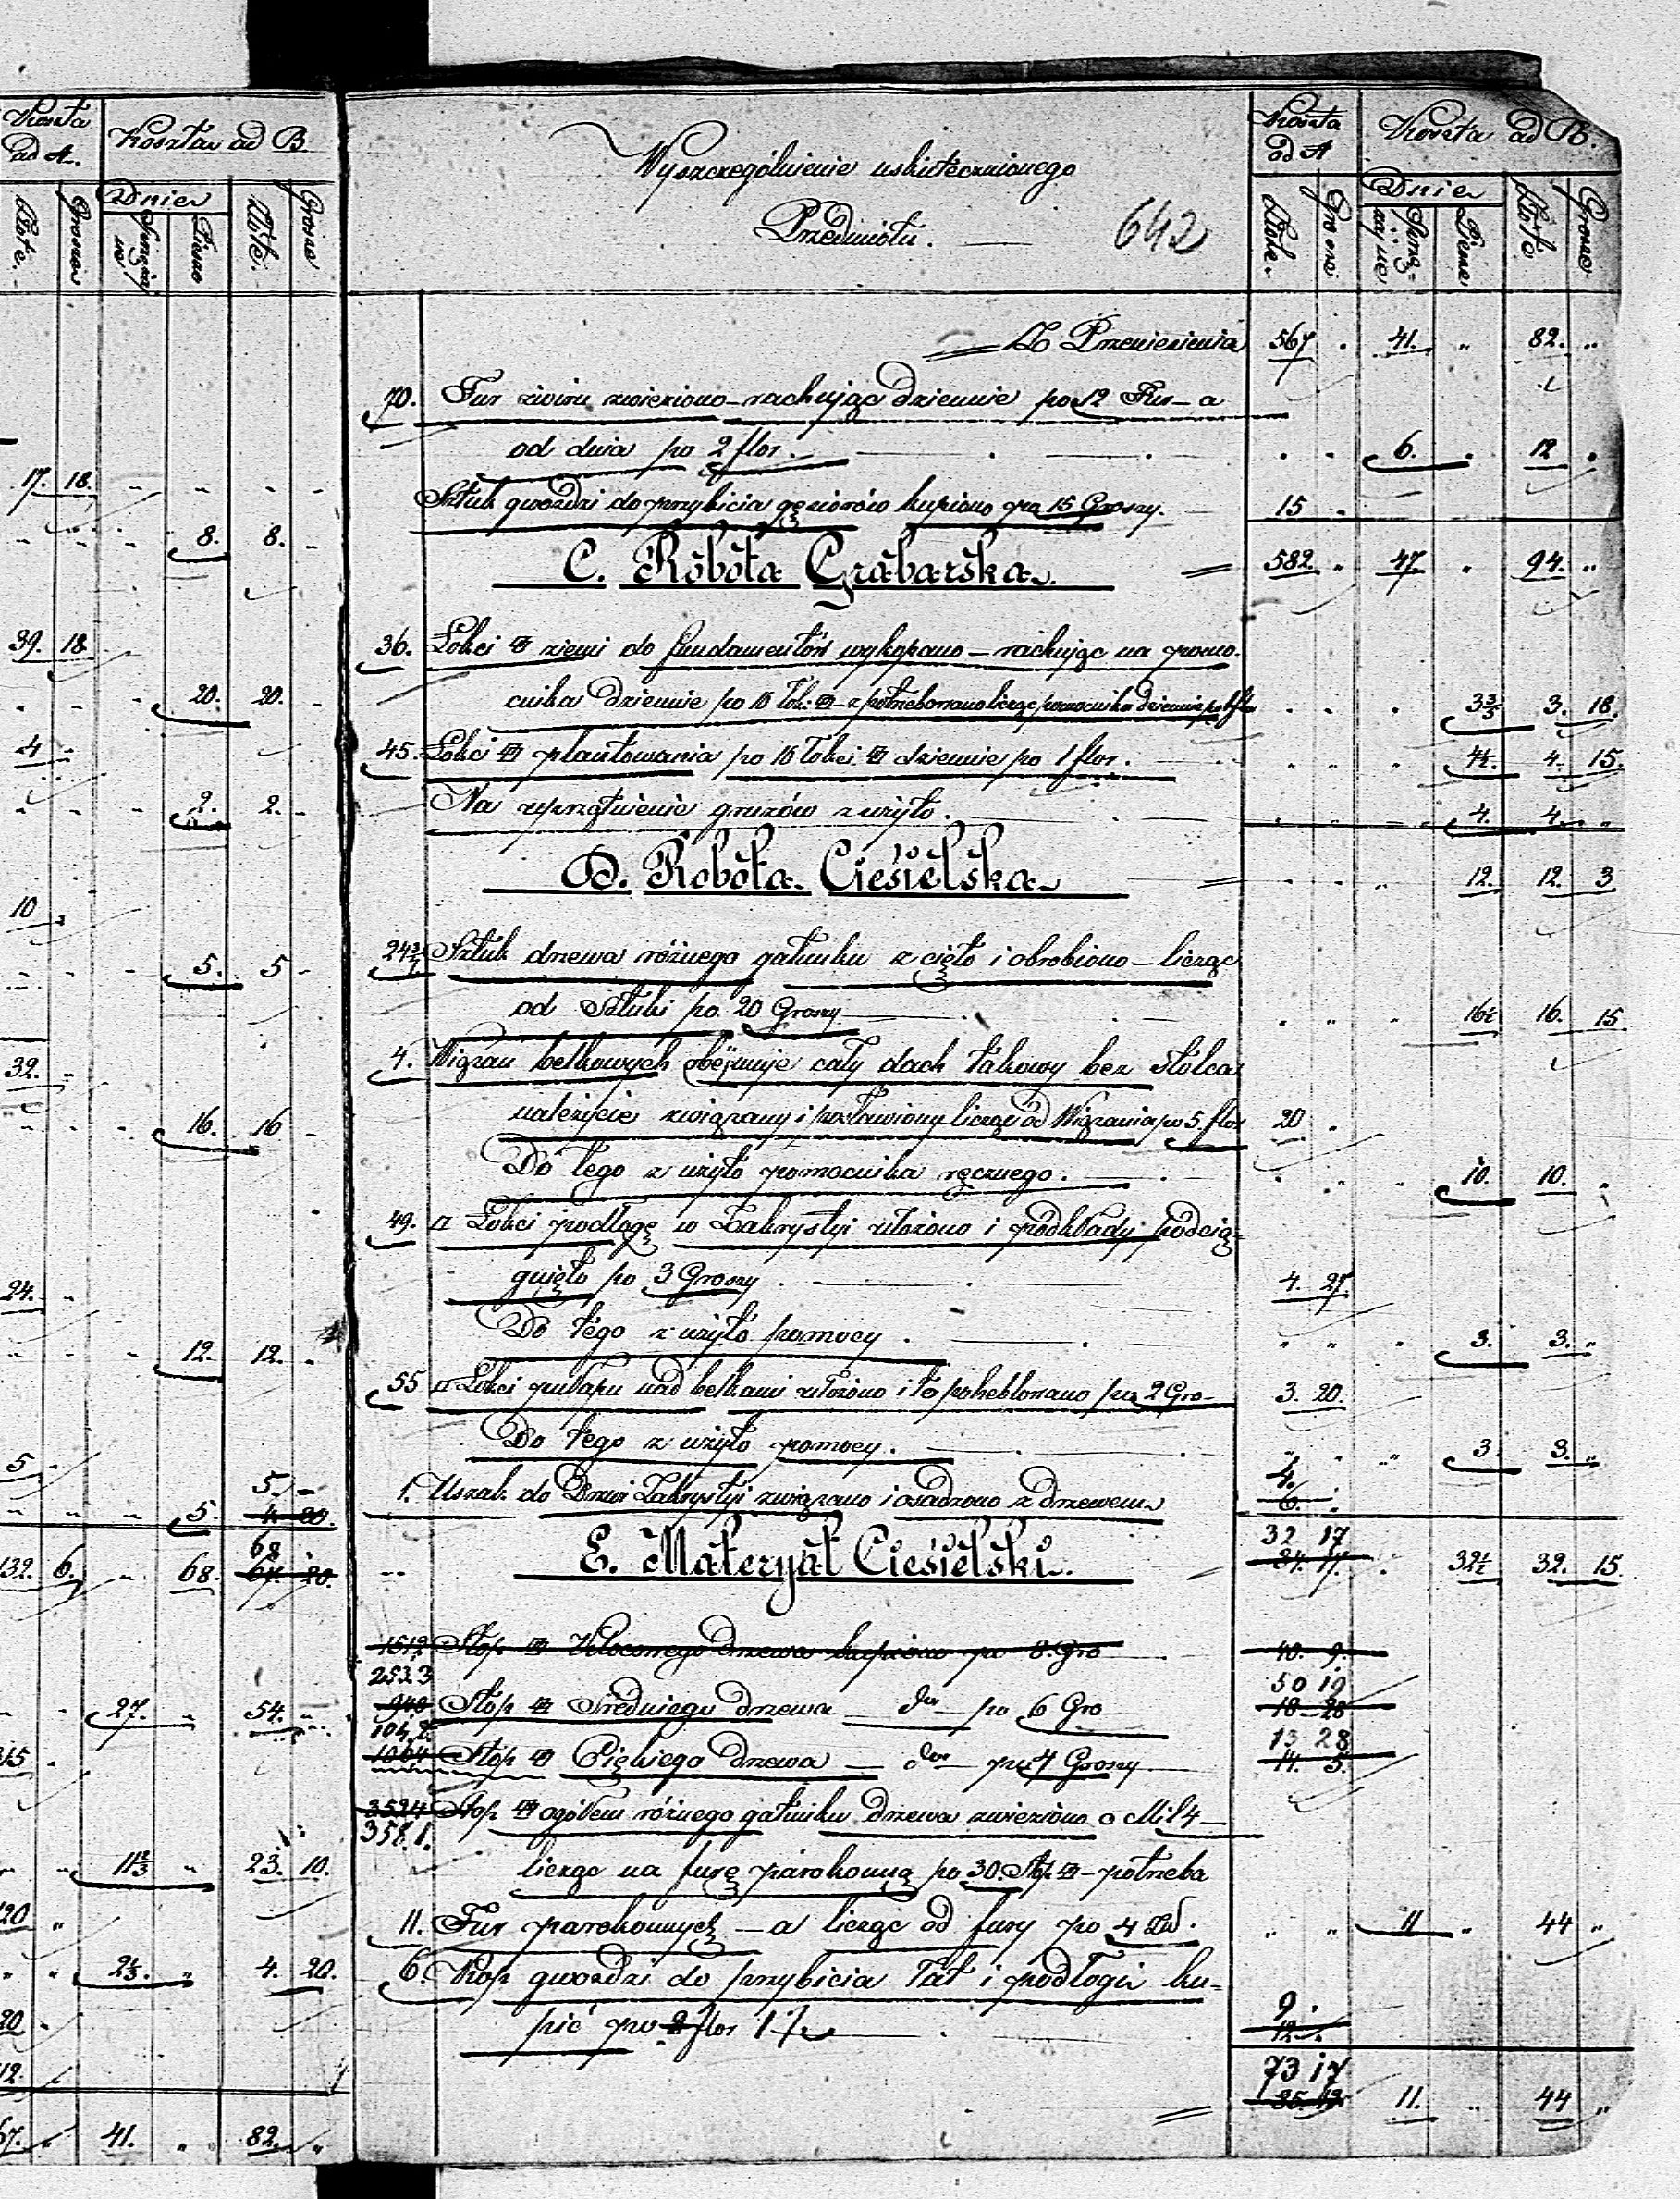 Koszta ad A. Koszta ad B
Dnie
Złote. Grosze Piesze Złote. Grosze
17. 18. - - - -
- - - 8. 8. -
39. 18
- - - 20. 20. -
4 -
- - - 2. 2. -
10
- - - 5. 5 -
32. -
- - - 16. 16 -
24. -
- - - 12. 12. -
5 -
5. -
- - - 5. 4 20.
68
132. 6. - 68. 67. 20.
- - 27. - 54. -
315.
- - 11 2/3 " 23. 10.
120 "
" " 2 1/3. " 4. 20.
20 -
12.
67. " 41. " 82. "
Wyszczególnienie uskutecznionego
Przedmiotu. — 642
Koszta ad A Koszta ad B.
Dnie
Złote. Grosze Piesze Złote Grosze
Z Przeniesienia 567 . 41. " 82. "
70. Fur żwiru zwieziono - rachując dziennie po 12 Fur - a
od dnia po 2 flor. — . . 6. . 12 .
Sztuk gwoździ do przybicia gęsiorów kupiono po 15 Groszy. 15 .
C. Robota Grabarska. 582 " 47 " 94. "
36. Łokci ziemi do fundamentów wykopano - rachując na pomo-
cnika dziennie po 10 Łok: - potrzebowano licząc pomocnika dziennie po 1 flor 3 3/5 3. 18.
45. Łokci plantowania po 10 Łokci dziennie po 1 flor. 4 1/2. 4. 15.
Na uprzątnienie gruzów zużyto. 4. 4. "
D. Robota Ciesielska 12. 12. 3
24 3/4 Sztuk drzewa różnego gatunku z cięto i obrobiono - licząc
od Sztuki po 20 Groszy 16 1/2 16. 15
4. Wiązań belkowych obejmuje cały dach takowy bez stolca
należycie związany i postawiony licząc od Wiązania po 5. flor 20 .
Do tego z użyto pomocnika ręcznego. 10. 10. .
49. □ Łokci podłogę w Zakrystyi ułożono i podkłady podcią-
gnięto po 3 Groszy . 4. 27.
Do tego z użyto pomocy . 3. 3. "
55 □ Łokci pułapu nad belkami ułożono i to poheblowano po 2 Gro- 3. 20.
Do tego z użyto pomocy. 3. 3. "
4.
1. Uszak do Drzwi Zakrystyi związano i osadzono z drzewem 6. .
32 17
E. Materyał Ciesielski. 34. 17. 32 1/2 32. 15.
1512 Stop Klocowego drzewa kupiono po 8. Gro 40. 9.
253.3 50 19
940 Stop Średniego drzewa — dto — po 6 Gro 18 28
104.5 13 28
1064 Stóp Ciękiego drzewa — dto — po 4 Groszy 14. 5.
3524 Stop ogółem różnego gatunku drzewa zwieziono o Mil 4 —
358.1.
licząc na furę parokonną po 30. Stop - potrzeba
11. Fur parokonnych — a licząc od fury po 4 Zł. " " 11 " 44 "
6. Kop gwoździ do przybicia łat i podłogi ku-
9.
pić po 2 flor 1 1/2 12. .
73 17
35. 12. 11. " 44 "